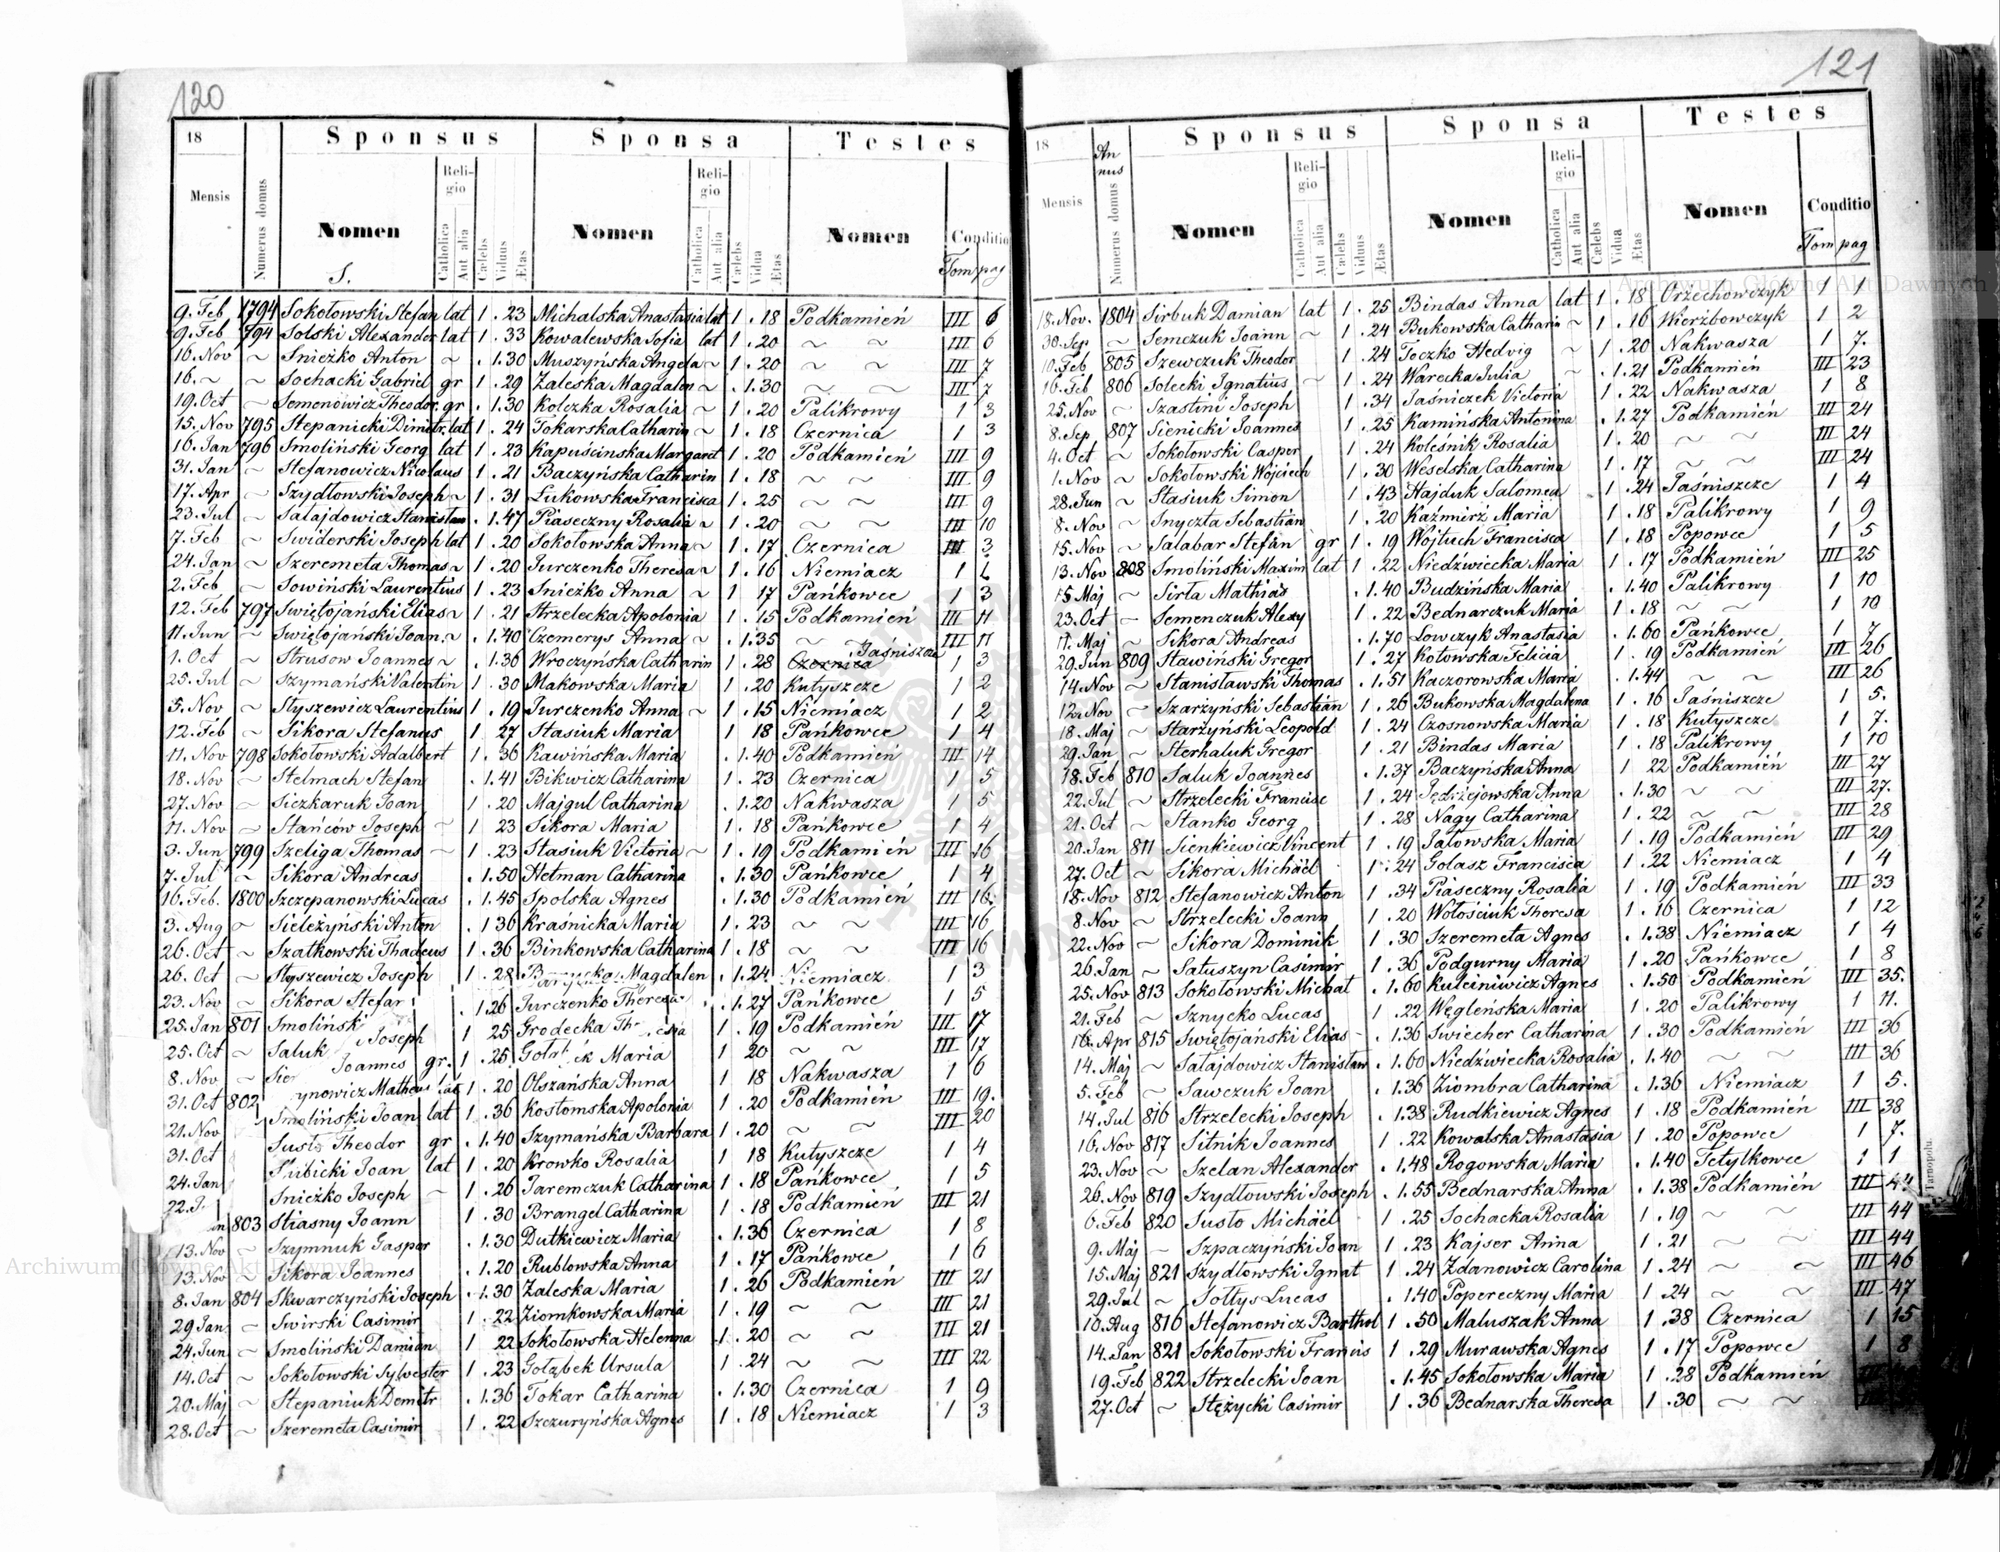 120
18 Sponsus Sponsa Testes
Mensis Numerus domus Nomen Religio Catholica Aut alia Cælebs Viduus Ætas Nomen Religio Catholica Aut alia Cælebs Vidua Ætas Nomen Conditio
S. Tom pag
9. Feb 1794 Sokołowski Stefan lat 1 . 23 Michalska Anastasia lat 1 . 18 Podkamień III 6
9. Feb 794 Solski Alexander lat 1 . 33 Kowalewska Sofia lat 1 . 20 ~ ~ III 6
16. Nov ~ Snieżko Anton ~ . 1. 30 Muszyńska Angela ~ 1 . 20 ~ ~ III 7
16. ~ ~ Sochacki Gabriel gr 1 . 29 Zaleska Magdalen ~ . 1. 30 ~ ~ III 7
19. Oct ~ Semenowicz Theodor gr . 1. 30 Kolczka Rosalia ~ 1 . 20 Palikrowy 1 3
15. Nov 795 Stepanicki Dimitr. lat 1 . 24 Tokarska Catharin ~ 1 . 18 Czernica 1 3
10. Jan 796 Smoliński Georg lat 1 . 23 Kapuścinska Margaret 1 . 20 Podkamień III 9
31. Jan ~ Stefanowicz Nicolaus 1 . 21 Baczyńska Catharin 1 . 18 ~ ~ III 9
17. Apr ~ Szydłowski Joseph ~ 1 . 31 Łukowska Francisca 1 . 25 ~ ~ III 9
23. Jul ~ Sałajdowicz Stanisław . 1. 47 Piaseczny Rosalia ~ 1 . 20 ~ ~ III 10
7. Feb ~ Swiderski Joseph lat 1 . 20 Sokołowska Anna ~ 1 . 17 Czernica 3
24. Jan ~ Szeremeta Thomas ~ 1 . 20 Jurczenko Theresa ~ 1 . 16 Niemiacz 1
2. Feb ~ Sowiński Laurentius 1 . 23 Snieżko Anna ~ 1 17 Pańkowce 1 3
12. Feb 797 Swiętojański Elias ~ 1 . 21 Strzelecka Apolonia 1 . 15 Podkamień III 11
11. Jun ~ Swiętojański Joan. ~ . 1. 40 Czemerys Anna ~ . 1. 35 ~ ~ III 11
1. Oct ~ Strusow Joannes ~ . 1. 36 Wroczyńska Catharin 1 . 28 Czernica Jaśniszcze 1 3
25. Jul ~ Szymański Valentin 1 . 30 Makowska Maria 1 . 20 Kutyszcze 1 2
5. Nov ~ Styszewicz Laurentius 1 . 19 Jurczenko Anna ~ 1 . 15 Niemiacz 1 2
12. Feb ~ Sikora Stefanus 1 27 Stasiuk Maria 1 18 Pańkowce 1 4
11. Nov 798 Sokołowski Adalbert 1 . 36 Kawińska Maria . 1. 40 Podkamień III 14
18. Nov ~ Stelmach Stefan . 1. 41 Bikwicz Catharina 1 . 23 Czernica 1 5
27. Nov ~ Siczkaruk Joan 1 . 20 Majgul Catharina . 1. 20 Nakwasza 1 5
11. Nov ~ Stańców Joseph ~ 1 23 Sikora Maria 1 . 18 Pańkowce 1 4
3. Jun 799 Szeliga Thomas ~ 1 . 23 Stasiuk Victoria ~ 1 . 19 Podkamień III 16
7. Jul ~ Sikora Andreas . 1. 50 Hetman Catharina . 1. 30 Pańkowce 1 4
16. Feb. 1800 Szczepanowski Lucas . 1. 45 Spolska Agnes . 1. 30 Podkamień III 16.
3. Aug ~ Sieleżyński Anton . 1 36 Kraśnicka Maria 1 . 23 ~ ~ III 16
26. Oct ~ Szatkowski Thadeus 1 . 36 Binkowska Catharina 1 . 18 ~ ~ III 16
26. Oct ~ Styszewicz Joseph 1 . 28 Magdalen . 1. 24. Niemiacz 1 3
23. Nov ~ Sikora Stefan . 1. 26 Jurczenko Theresa . 1. 27 Pańkowce 1 5
25. Jan 801 Smoliński Joseph 1 25 Grodecka 1 . 19 Podkamień III 17
25. Oct ~ Saluk Joannes gr. 1 . 25 Maria 1 20 ~ ~ III 17
8. Nov ~ ynowicz Matheus lat 1 . 20 Olszańska Anna 1 18 Nakwasza 1 6
31. Oct 802 Smoliński Joan lat 1 . 36 Kostomska Apolonia 1 . 20 Podkamień III 19.
21. Nov Susło Theodor gr . 1. 40 Szymańska Barbara 1 . 20 ~ ~ III 20
31. Oct Słubicki Joan lat 1 . 20 Krowko Rosalia 1 18 Kutyszcze 1 4
24. Jan Snieżko Joseph ~ 1 . 26 Jaremczuk Catharina 1 . 18 Pańkowce 1 5
22. J 803 Stiasny Joann 1 . 30 Brangel Catharina 1 18 Podkamień III 21
13. Nov ~ Szymnuk Gaspar . 1. 30 Dutkiewicz Maria . 1. 36 Czernica 1 8
13. Nov ~ Sikora Joannes . 1. 20 Rublowska Anna 1 . 17 Pańkowce 1 6
8. Jan 804 Skwarczyński Joseph . 1. 30 Zaleska Maria 1 . 26 Podkamień III 21
29 Jan ~ Swirski Casimir 1 . 22 Ziomkowska Maria 1 . 19 ~ ~ III 21
24. Jun ~ Smoliński Damian 1 22 Sokołowska Helenna 1 . 20 ~ ~ III 21
14. Oct ~ Sokołowski Sylwester 1 . 23 Gołąbek Ursula 1 . 24 ~ ~ III 22
20. Maj ~ Stepaniuk Demetr . 1. 36 Tokar Catharina . 1. 30 Czernica 1 9
28. Oct ~ Szeremeta Casimir 1 . 22 Szczuryńska Agnes 1 . 18 Niemiacz 1 3
121
18 Annus Sponsus Sponsa Testes
Mensis Numerus domus Nomen Religio Catholica Aut alia Cælebs Viduus Ætas Nomen Religio Catholica Aut alia Cælebs Vidua Ætas Nomen Conditio
Tom pag
18. Nov. 1804 Sirbuk Damian lat 1 . 25 Bindas Anna lat 1 . 18 Orzechowczyk 1 1
30. Sep ~ Semczuk Joann ~ 1 . 24 Bukowska Catharin ~ 1 . 16 Wierzbowczyk 1 2
10. Feb 805 Szewczuk Theodor 1 . 24 Toczko Hedvig ~ 1 . 20 Nakwasza 1 7.
16. Feb 806 Solecki Ignatius ~ 1 . 24 Warecka Julia ~ . 1. 21 Podkamień III 23
25. Nov ~ Szastini Joseph 1 . 34 Jaśniczek Victoria 1 . 22 Nakwasza 1 8
8. Sep 807 Sienicki Joannes 1 . 25 Kamińska Antonina . 1. 27 Podkamień III 24
4. Oct ~ Sokołowski Casper 1 . 24 Koleśnik Rosalia 1 . 20 ~ ~ III 24
1. Nov ~ Sokołowski Wojciech 1 . 30 Weselska Catharina 1 . 17 ~ ~ III 24
28. Jun ~ Stasiuk Simon 1 . 43 Hajduk Salomea 1 . 24 Jaśniszcze 1 4
8. Nov ~ Snyczta Sebastian 1 . 20 Kaźmierz Maria 1 . 18 Palikrowy 1 9
15. Nov ~ Salabar Stefan gr 1 . 19 Wojtuch Francisca 1 . 18 Popowce 1 5
13. Nov 808 Smoliński Maxim lat 1 . 22 Niedźwiecka Maria 1 . 17 Podkamień III 25
15 Maj ~ Sirła Mathias . 1. 40 Budzińska Maria . 1. 40 Palikrowy 1 10
23. Oct ~ Semenczuk Alexy 1 . 22 Bednarczuk Maria 1 . 18 ~ ~ 1 10
17. Maj ~ Sikora Andreas . 1. 70 Łowczyk Anastasia . 1. 60 Pańkowce 1 7
29. Jun 809 Sławiński Gregor 1 . 27 Kotowska Felicia 1 . 19 Podkamień III 26
14. Nov ~ Stanisławski Thomas . 1. 51 Kaczorowska Maria . 1. 44 ~ ~ III 26
12. Nov ~ Szarzyński Sebastian 1 . 26 Bukowska Magdalena 1 . 16 Jaśniszcze 1 5.
18. Maj ~ Starżyński Leopold 1 . 24 Czosnowska Maria 1 . 18 Kutyszcze 1 7.
29. Jan ~ Sterhaluk Gregor 1 . 21 Bindas Maria 1 . 18 Palikrowy 1 10
18. Feb 810 Saluk Joannes . 1. 37 Baczyńska Anna 1 22 Podkamień III 27
22. Jul ~ Strzelecki Francisc 1 . 24 Jędrzejowska Anna . 1. 30 ~ ~ III 27.
21. Oct ~ Stanko Georg 1 . 28 Nagy Catharina 1 . 22 ~ ~ III 28
20. Jan 811 Sienkiewicz Vincent 1 . 19 Jatowska Maria 1 . 19 Podkamień III 29
27. Oct ~ Sikora Michäel 1 . 24 Golasz Francisca 1 . 22 Niemiacz 1 4
18. Nov 812 Stefanowicz Anton 1 . 34 Piaseczny Rosalia 1 . 19 Podkamień III 33
8. Nov ~ Strzelecki Joann 1 . 20 Wołościuk Theresa 1 . 16 Czernica 1 12
22. Nov ~ Sikora Dominik 1 . 30 Szeremeta Agnes . 1. 38 Niemiacz 1 4
26. Jan ~ Satuszyn Casimir 1 . 36 Podgurny Maria 1 . 20 Pańkowce 1 8
25. Nov 813 Sokołowski Michał . 1. 60 Kulciniwicz Agnes . 1. 50 Podkamień III 35.
21. Feb ~ Sznycko Lucas 1 . 22 Węgleńska Maria 1 . 20 Palikrowy 1 11.
16. Apr 815 Swiętojański Elias ~ . 1. 36 Swiecher Catharina 1 . 30 Podkamień III 36
14. Maj ~ Sałajdowicz Stanisław . 1. 60 Niedźwiecka Rosalia . 1. 40 ~ ~ III 36
5. Feb ~ Sawczuk Joan . 1. 36 Ziombra Catharina . 1. 36 Niemiacz 1 5.
14. Jul 816 Strzelecki Joseph . 1. 38 Rudkiewicz Agnes 1 . 18 Podkamień III 38
16. Nov 817 Sitnik Joannes 1 . 22 Kowalska Anastasia 1 . 20 Popowce 1 7.
23. Nov ~ Szelan Alexander . 1. 48 Rogowska Maria . 1. 40 Tetylkowce 1 1
26. Nov 819 Szydłowski Joseph . 1. 55 Bednarska Anna . 1. 38 Podkamień III
6. Feb 820 Susło Michäel 1 . 25 Sochacka Rosalia 1 . 19 ~ ~ III 44
9. Maj ~ Szpaczyński Joan 1 . 23 Kajser Anna 1 . 21 ~ ~ III 44
15. Maj 821 Szydłowski Ignat 1 . 24 Zdanowicz Carolina 1 . 24 ~ ~ III 46
29. Jul ~ Sołtys Lucas . 1. 40 Popereczny Maria 1 . 24 ~ ~ III 47
10. Aug 816 Stefanowicz Barthol 1 . 50 Maluszak Anna 1 . 38 Czernica 1 15
14. Jan 821 Sokołowski Francis 1 . 29 Murawska Agnes 1 . 17 Popowce 1 8
19. Feb 822 Strzelecki Joan . 1. 45 Sokołowska Maria 1 . 28 Podkamień
27. Oct ~ Stężycki Casimir 1 . 36 Bednarska Theresa 1 . 30 ~ ~
Tarnopolu.
Archiwum Główne Akt Dawnych
Archiwum Główne Akt Dawnych